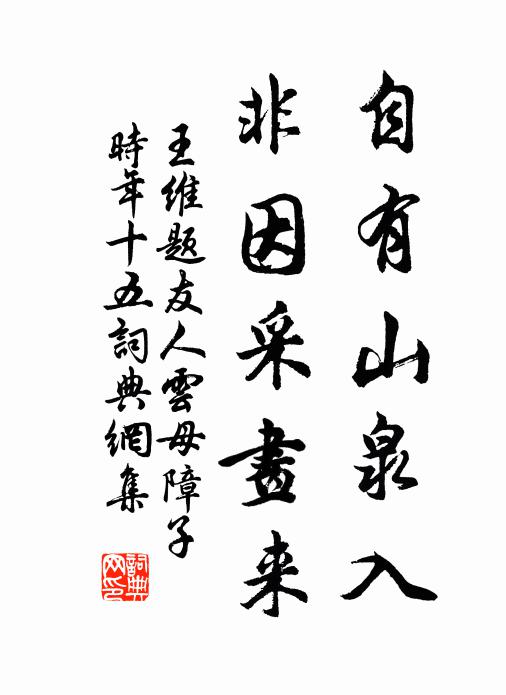 自有山泉入
非因采畫来
王維题友人雲母障子
時年十五詞典網集
詞典
网印